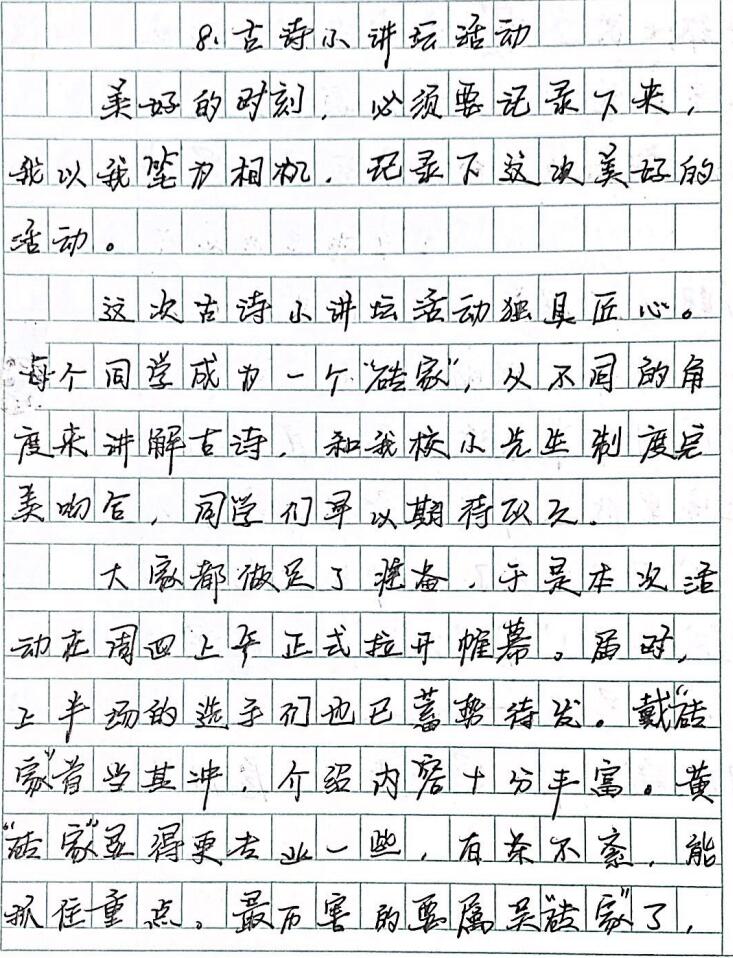 8.古诗小讲坛活动
美好的时刻，必须要记录下来，
我以我笔为相机，记录下这次美好的
活动。
这次古诗小讲坛活动独具匠心。
每个同学成为一个“砖家”，从不同的角
度来讲解古诗，和我校小先生制度完
美吻合，同学们早以期待已久.
大家都做足了准备，于是本次活
动在周四上午正式拉开帷幕。届时，
上半场的选手们也已蓄势待发。戴“砖
家”首当其冲，介绍内容十分丰富。黄
“砖家”显得更专业一些，有条不紊，能
抓住重点。最厉害的要属吴“砖家”了，